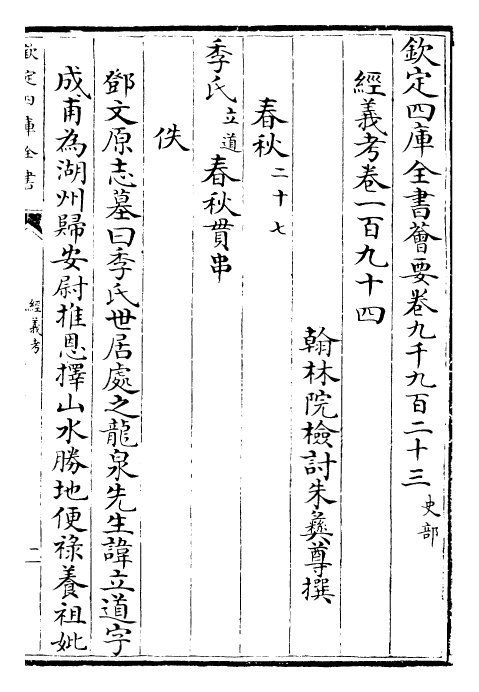 欽定四庫全書薈要卷九千九百二十三 史部
經義考卷一百九十四
翰林院檢討朱彝尊撰
春秋二十七
季氏立道春秋貫串
佚
鄧文原志墓曰季氏世居處之龍泉先生諱立道字
成甫為湖州歸安尉推恩擇山水勝地便祿養祖妣
欽定四庫全書
經義考
二